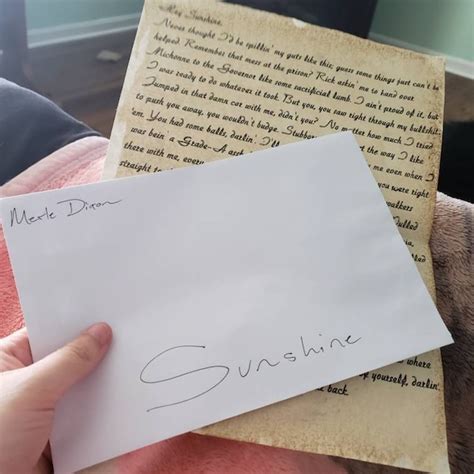 Hey Sunshine,
Never thought I'd be spillin' my guts like this, guess some things just can't be
helped. Remember that mess at the prison? Rick askin' me to hand over
Michonne to the Governor like some sacrificial lamb. I ain't proud of it, but
I was ready to do whatever it took. But you, you saw right through my bullshit.
Jumped in that damn car with me, didn't you? No matter how much I tried
to push you away, you wouldn't budge. Stubborn
the way I like
'em. You had some balls, darlin'. I'll
me even when I
was bein' a Grade-A
you were right
there with me, every
walkers
straight
Merle Dixon
Sunshine
where
up yourself, darlin'.
back